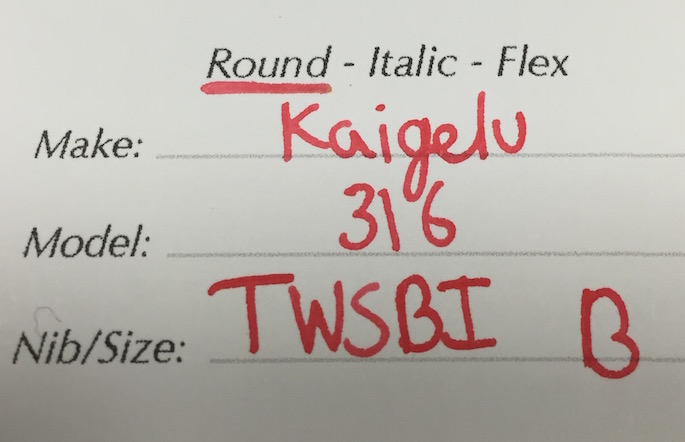 Round - Italic - Flex
Make: Kaigelu
Model: 316
Nib/Size: TWSBI B